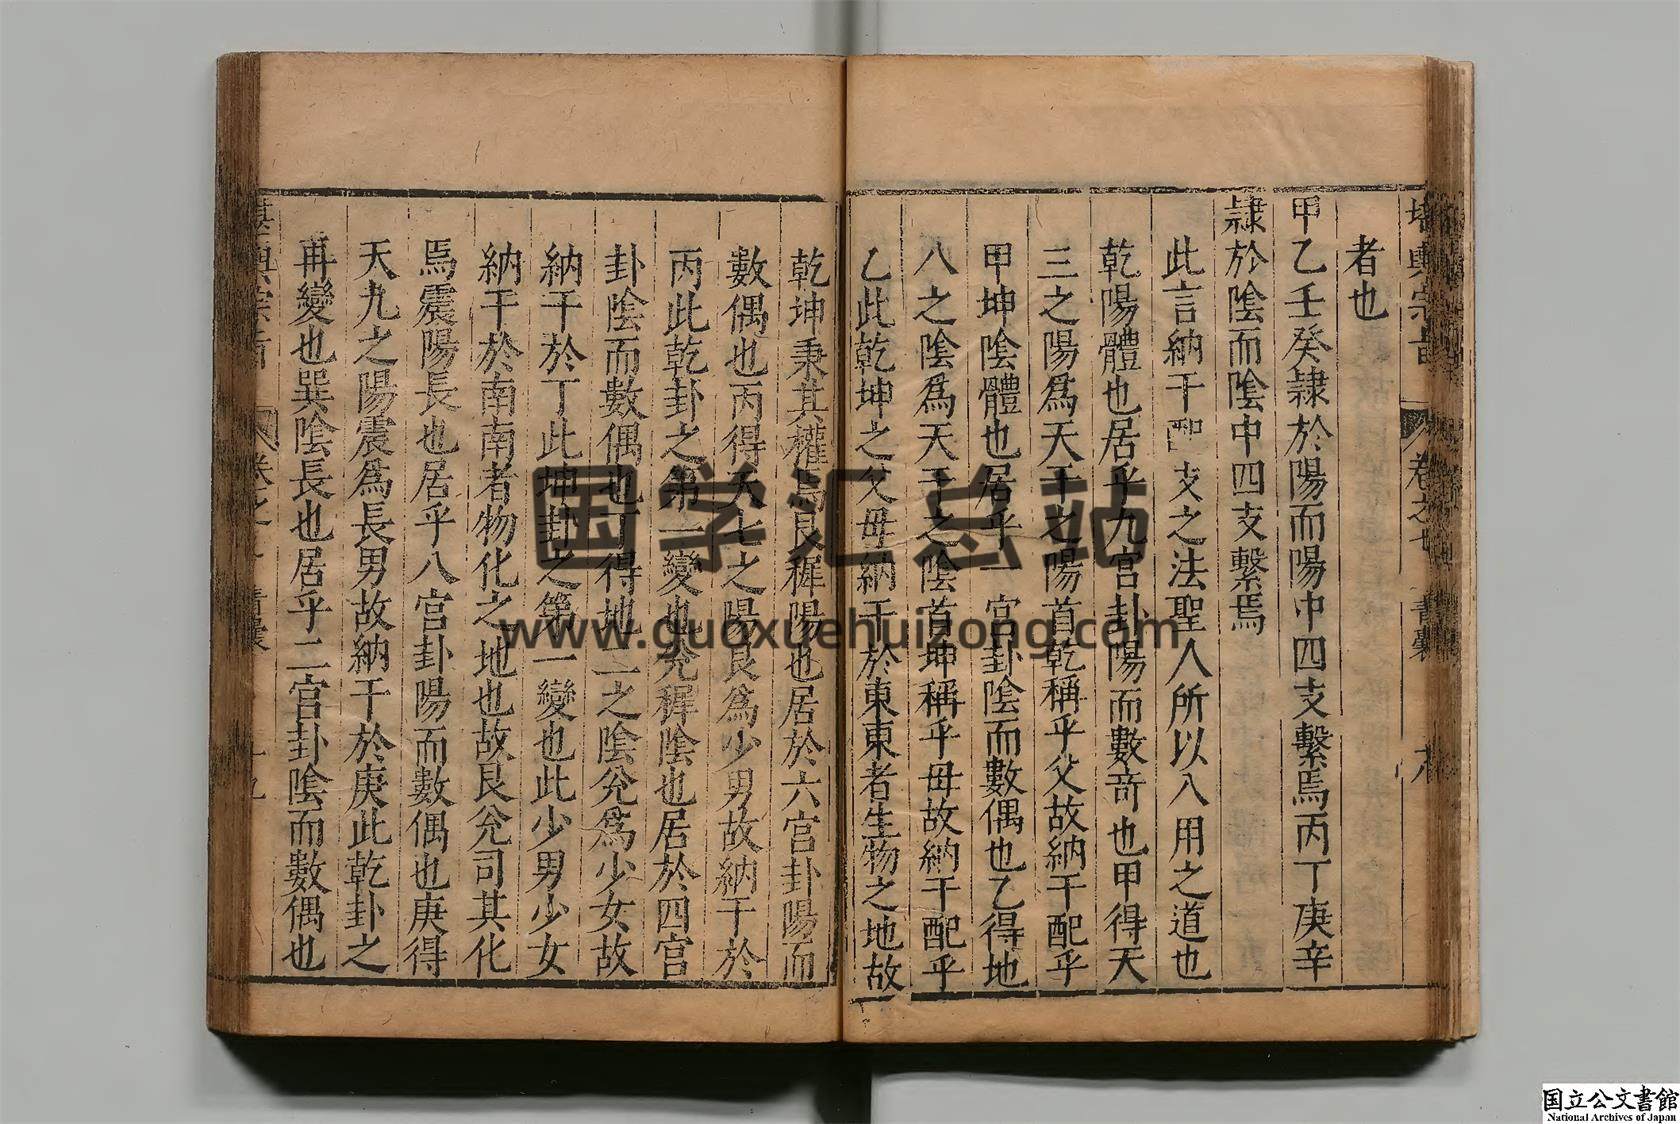 堪輿宗旨
卷之七
青囊
者也
甲乙壬癸隷於陽而陽中四支繫焉丙丁庚辛
隷於陰而陰中四支繫焉
此言納干配支之法聖人所以入用之道也
乾陽體也居乎九宫卦陽而數奇也甲得天
三之陽爲天干之陽首乾稱乎父故納干配乎
甲坤陰體也居乎一宫卦陰而數偶也乙得地
八之陰爲天干之陰首坤稱乎母故納干配乎
乙此乾坤之父母納干於東東者生物之地故
乾坤秉其權焉艮稺陽也居於六宫卦陽而
數偶也丙得天七之陽艮爲少男故納干於
丙此乾卦之第一變也兊稺陰也居於四宫
卦陰而數偶也丁得地二之陰兊爲少女故
納干於丁此坤卦之第一變也此少男少女
納干於南南者物化之地也故艮兊司其化
焉震陽長也居乎八宫卦陽而數偶也庚得
天九之陽震爲長男故納干於庚此乾卦之
再變也巽陰長也居乎二宫卦陰而數偶也
青囊
十九
国学汇总站
www.guoxuehuizong.com
国立公文書館
National Archives of Japan